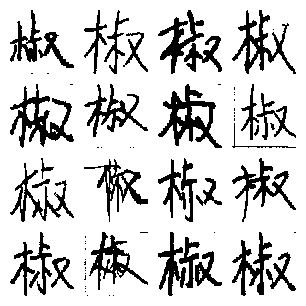 椒椒椒椒
椒椒椒椒
椒椒椒椒
椒椒椒椒